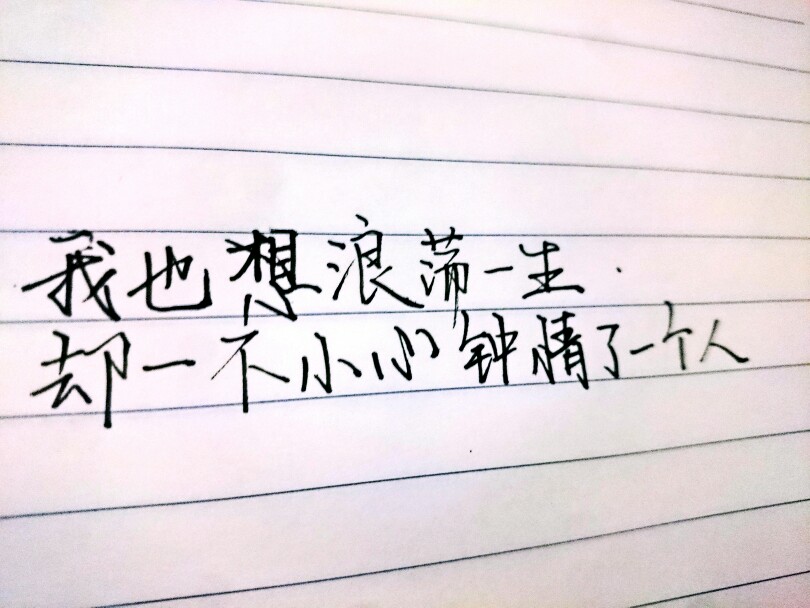 我也想浪荡一生.
却一不小心钟情了一个人